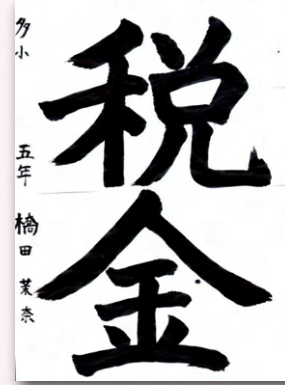 税金
多小 五年 橋田 茉奈